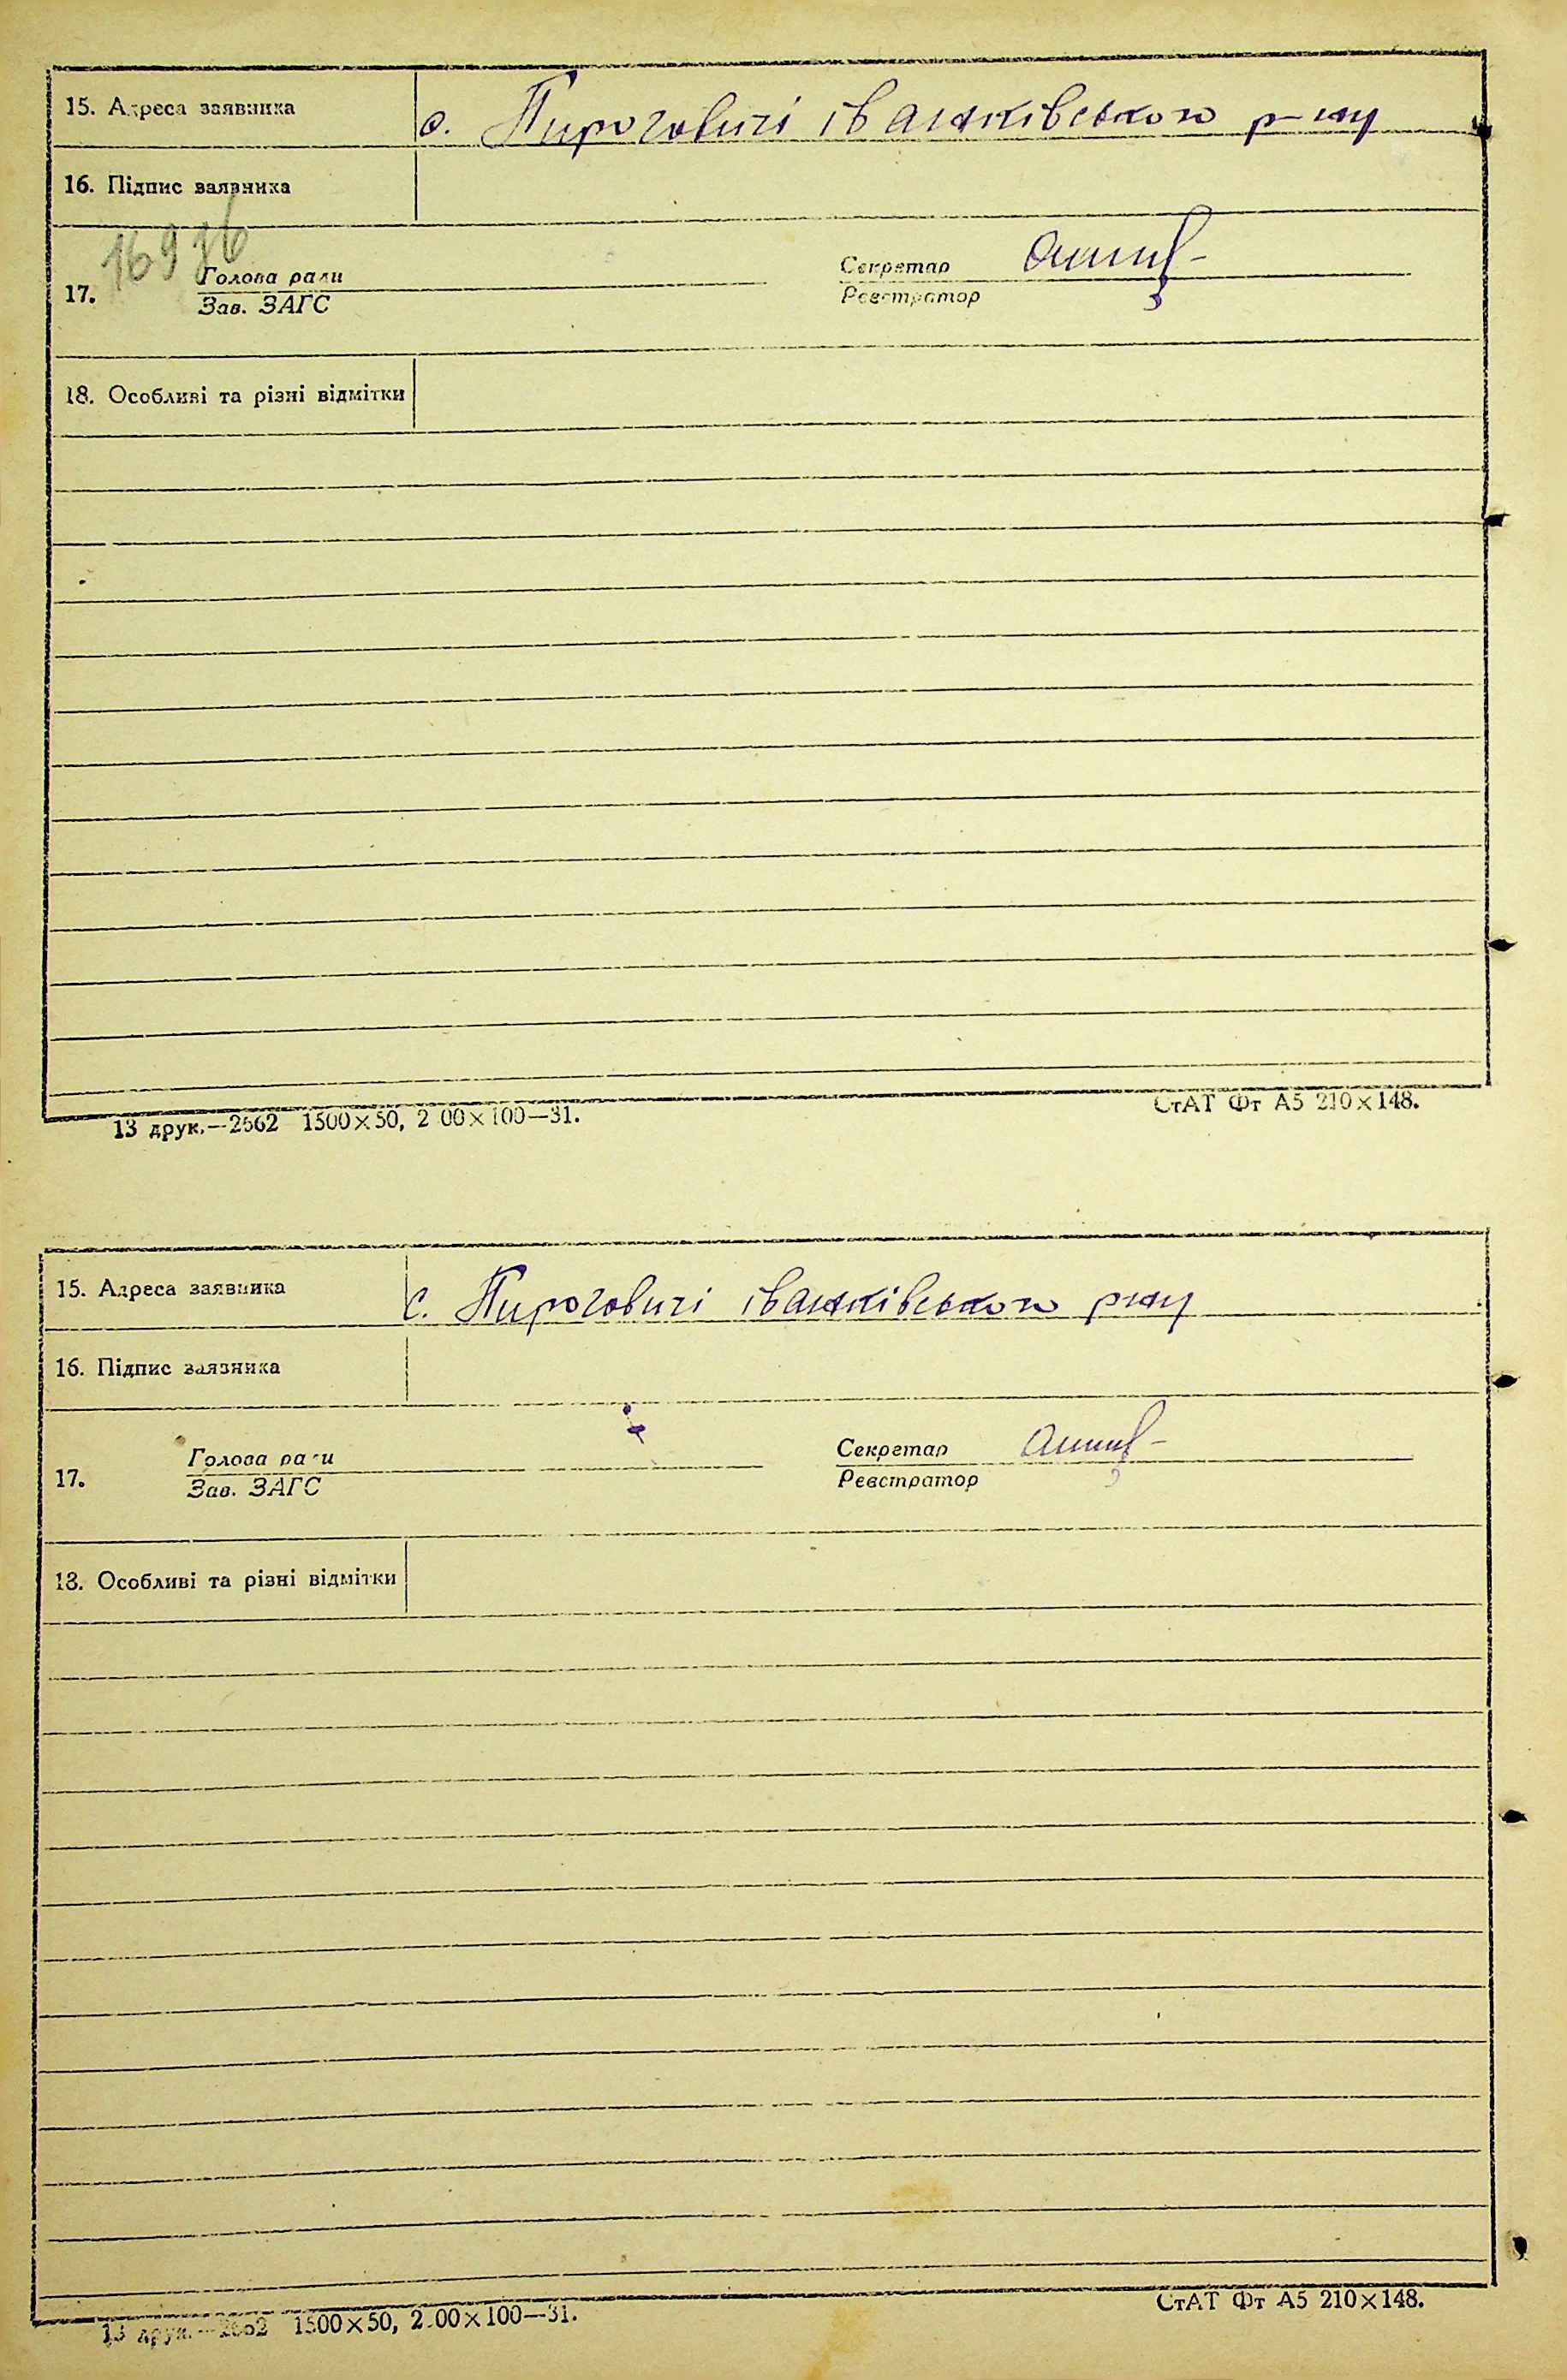 15. Адреса заявника с. Пироговичі іванківського р-ну
16. Підпис заявника
16916
17. Голова ради Секретар
Зав. ЗАГС Реєстратор
18. Особливі та різні відмітки
13 друк.—2662 1500×50, 2 00×100—31. СтАТ Фт А5 210×148.
15. Адреса заявника с. Пироговичі іванківського рну
16. Підпис заявника
17. Голова ради Секретар
Зав. ЗАГС Реєстратор
18. Особливі та різні відмітки
13 друк.—2662 1500×50, 2.00×100—31. СтАТ Фт А5 210×148.